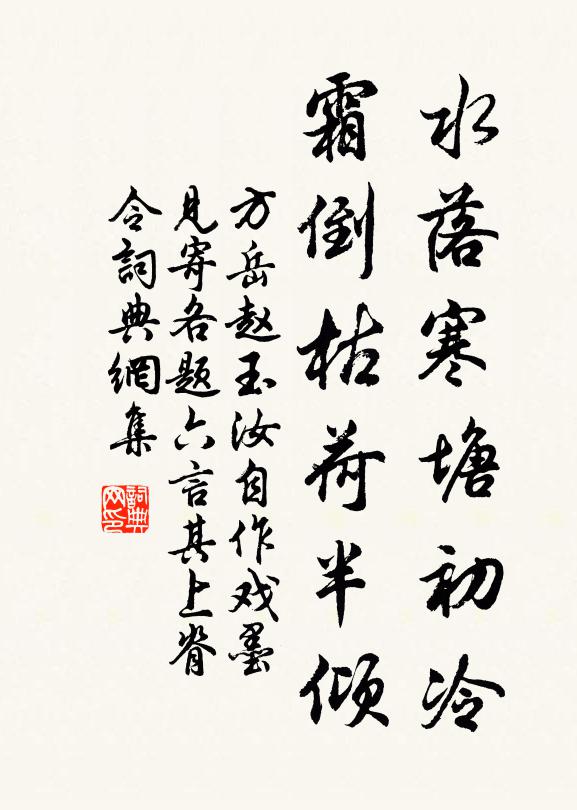 水落寒塘初冷
霜倒枯荷半倾
方岳赵玉汝自作戏墨
见寄各题六言其上脊
令詞典網集
詞典网印